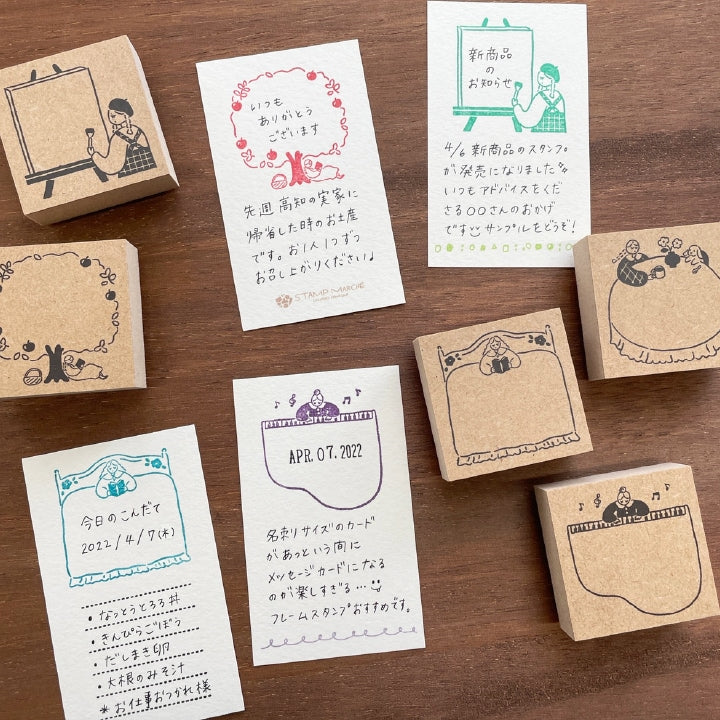 いつも
ありがとう
ございます
先週 高知の実家に
帰省した時のお土産
です。お1人1つずつ
お召し上がりください♩
STAMP MARCHÉ
新商品
の
お知らせ
4/6 新商品のスタンプ
が発売になりました
いつもアドバイスをくだ
さる○○さんのおかげ
です サンプルをどうぞ!
今日のこんだて
2022/4/7(木)
・なっとうとろろ丼
・きんぴらごぼう
・だしまき卵
・大根のみそ汁
*お仕事おつかれ様
APR. 07. 2022
名刺サイズのカード
があっという間に
メッセージカードになる
のが楽しすぎる…
フレームスタンプおすすめです。